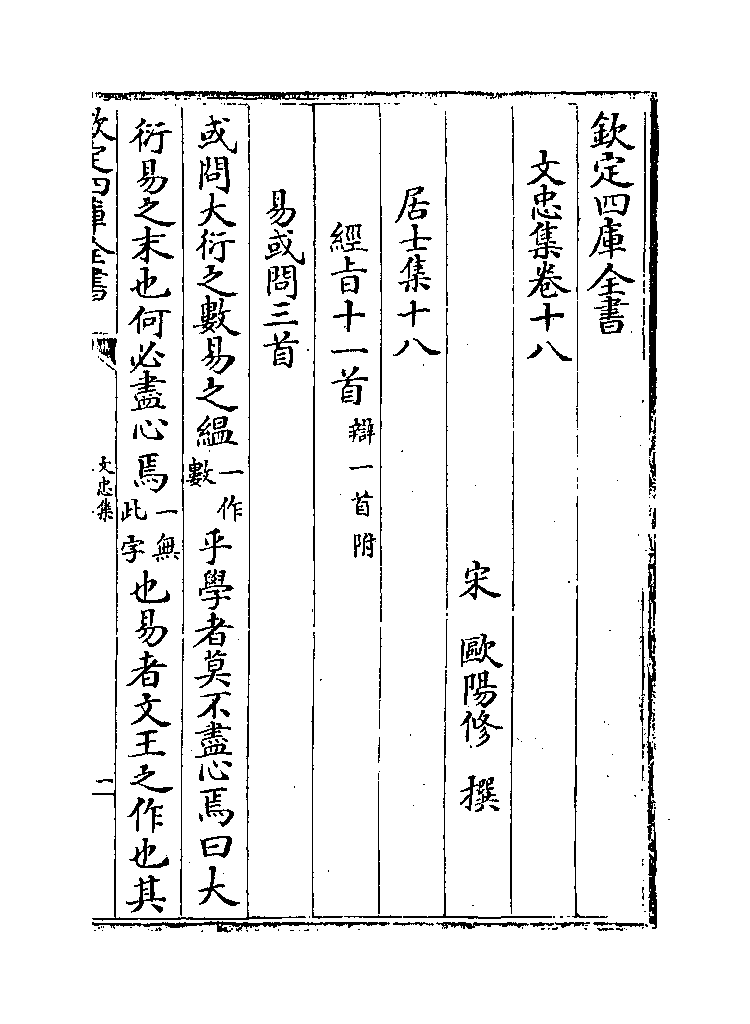 欽定四庫全書
文忠集卷十八
宋　歐陽修　撰
居士集十八
經旨十一首辯一首附
易或問三首
或問大衍之數易之緼一作數乎學者莫不盡心焉曰大
衍易之末也何必盡心焉一無此字也易者文王之作也其
欽定四庫全書
文忠集
一